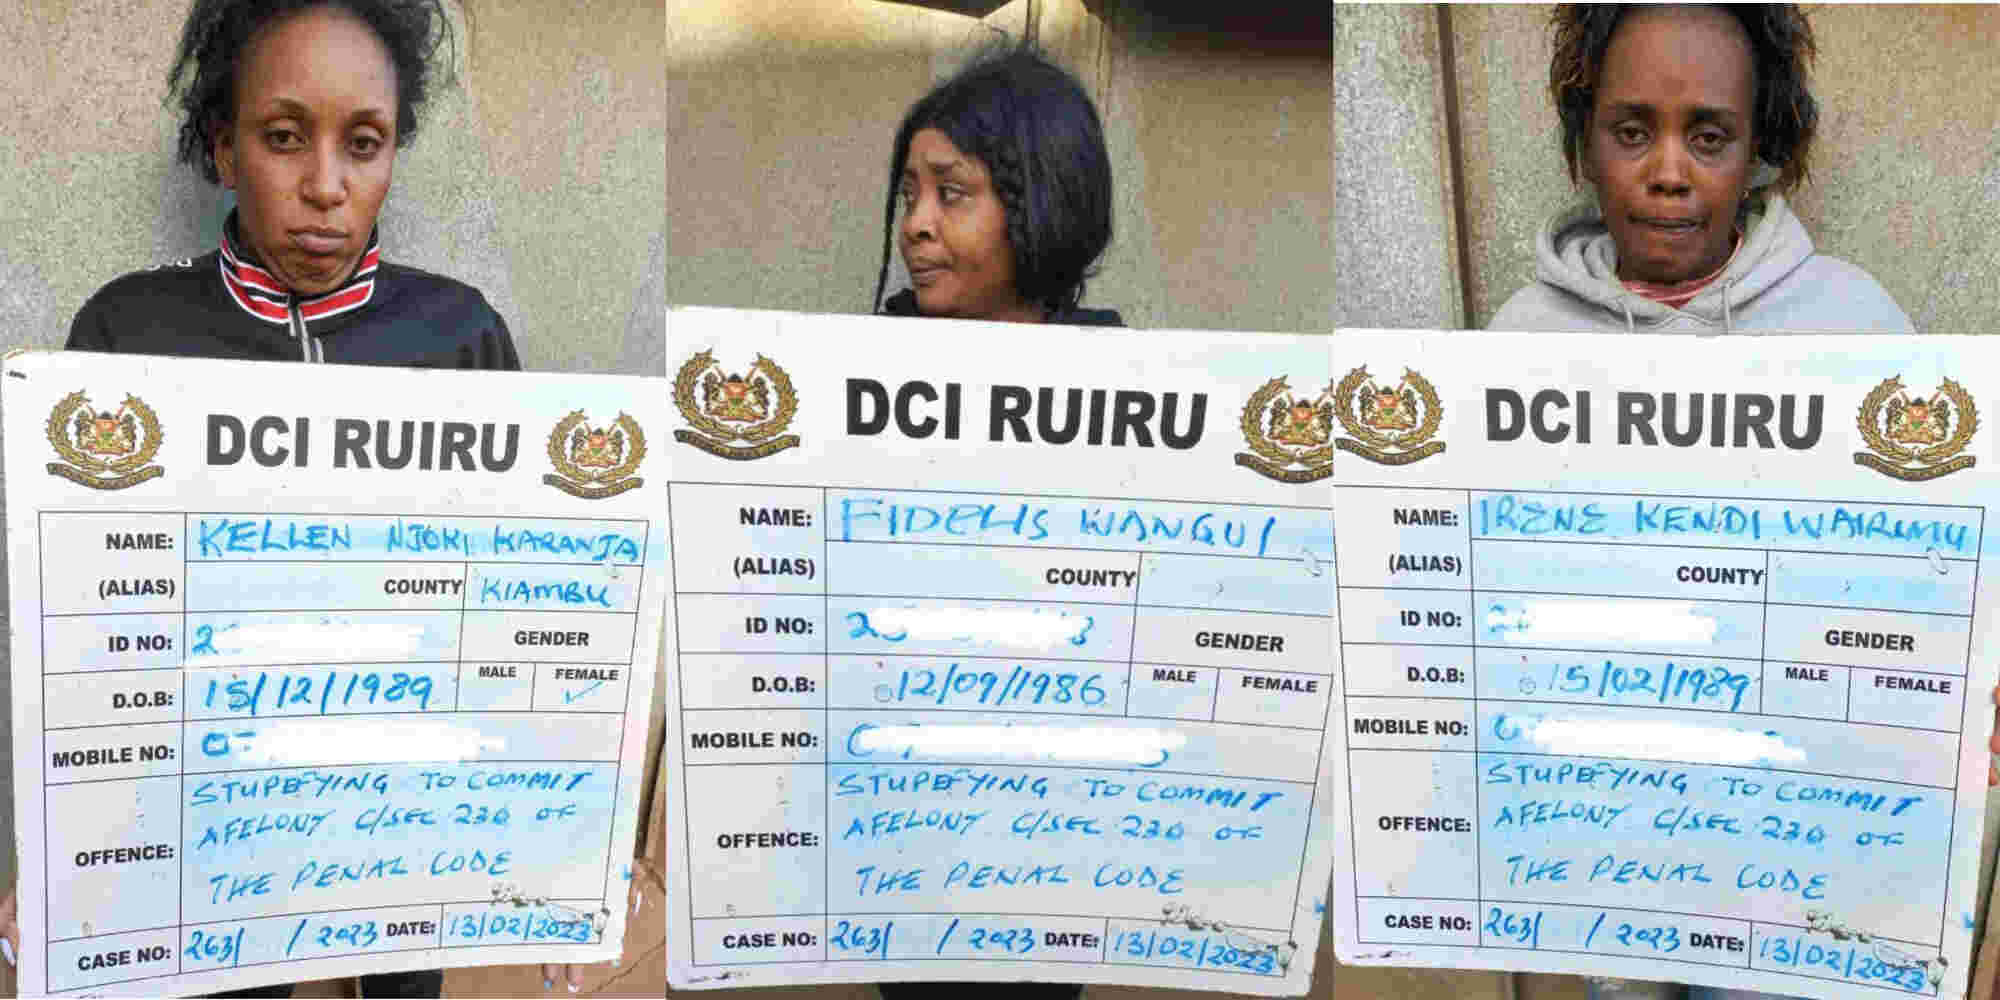 DCI RUIRU
NAME: KELLEN NJOKI KARANJA
(ALIAS) COUNTY KIAMBU
ID NO: 2 GENDER
D.O.B: 15/12/1989 MALE FEMALE ✓
MOBILE NO: 0
OFFENCE: STUPEFYING TO COMMIT
AFELONY C/SEC 230 OF
THE PENAL CODE
CASE NO: 263/ / 2023 DATE: 13/02/2023
DCI RUIRU
NAME: FIDELIS WANGUI
(ALIAS) COUNTY
ID NO: 2 3 GENDER
D.O.B: 12/09/1986 MALE FEMALE
MOBILE NO: 0
OFFENCE: STUPEFYING TO COMMIT
AFELONY C/SEC 230 OF
THE PENAL CODE
CASE NO: 263/ / 2023 DATE: 13/02/2023
DCI RUIRU
NAME: IRENE KENDI WAIRIMU
(ALIAS) COUNTY
ID NO: 2 GENDER
D.O.B: 15/02/1989 MALE FEMALE
MOBILE NO: 0
OFFENCE: STUPEFYING TO COMMIT
AFELONY C/SEC 230 OF
THE PENAL CODE
CASE NO: 263/ / 2023 DATE: 13/02/2023